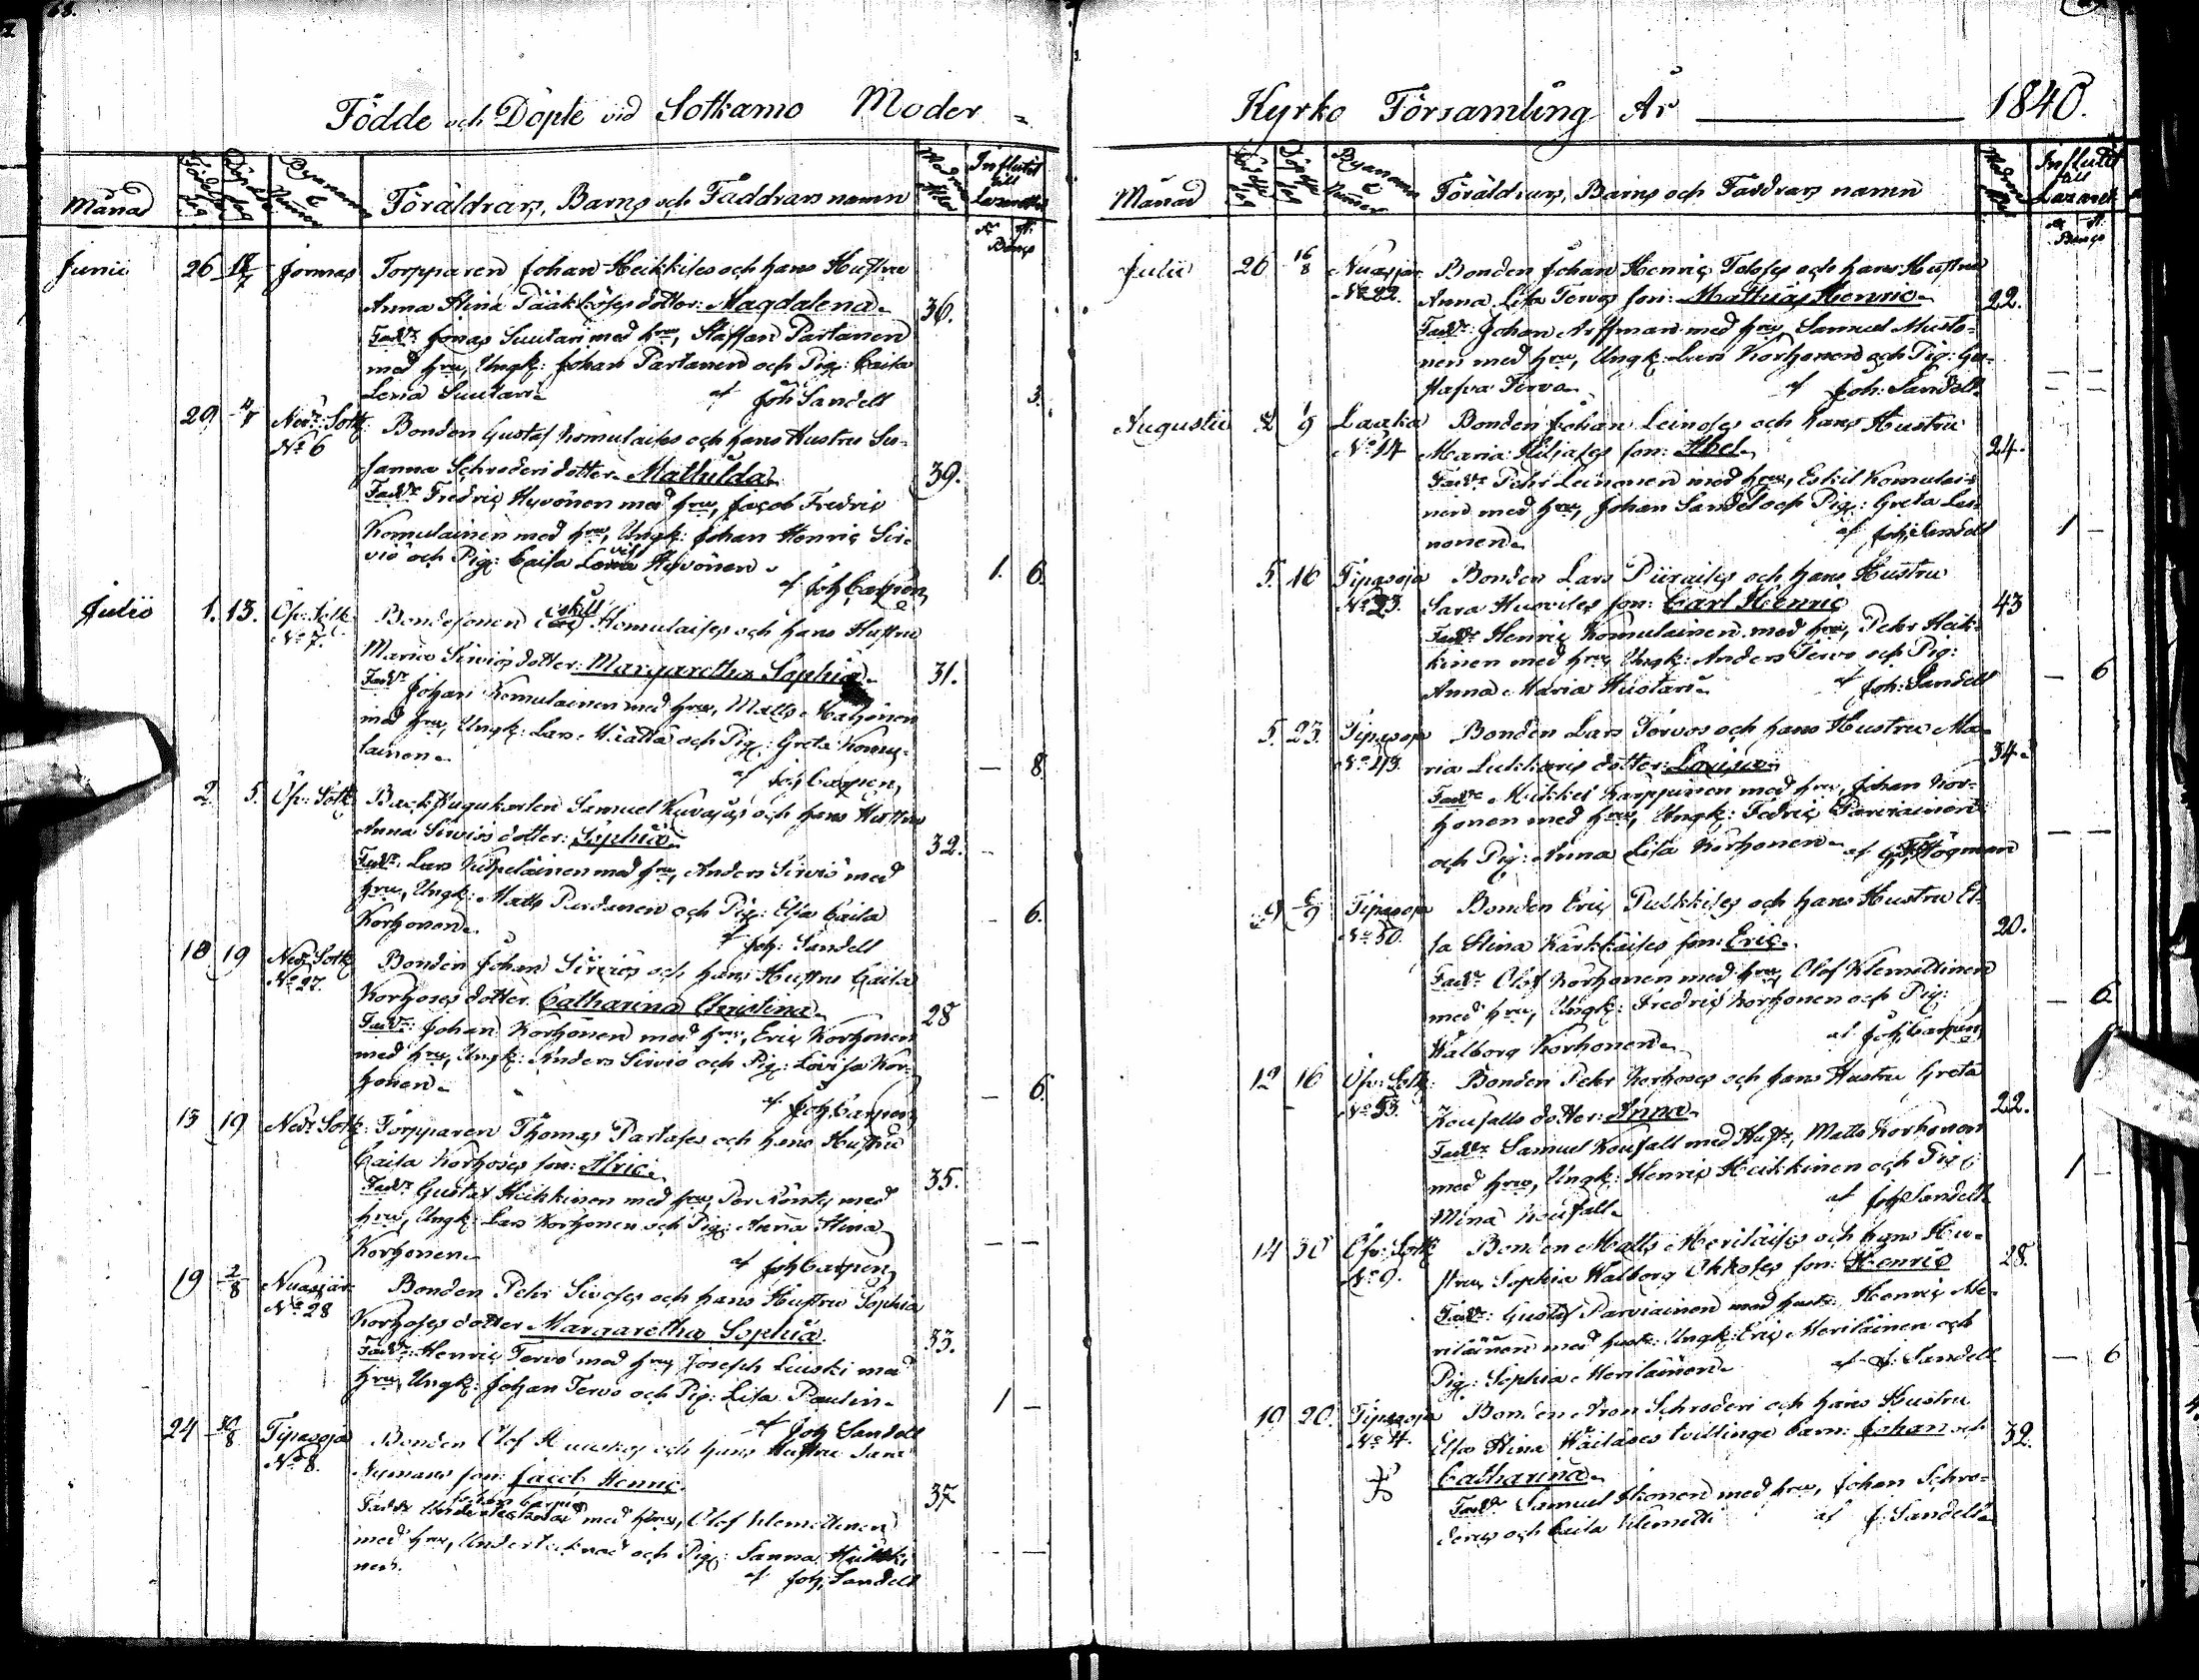 Födde och Döpte vid Sotkamo Moder =
Månad
Födelse dag
Döpelse dag
Byanamn & Nummer
Föräldrars, Barns och Faddrars namn
Modrens ålder
Influtit till Lazarettet
Banco
Junii 26 Jormas Torpparen Johan Heikkises och hans Hustru
Anna Stina Pääkköses dotter: Magdalena 36.
Faddr: Jonas Suutari med hru, Staffan Partanen
med hru, Ungk: Johan Partanen och Pig: Caisa
Lena Suutari af Joh Sandell 3.
29 Nedr: Sotk: Bonden Gustaf Komulaises och hans Hustru Su-
No 6
sanna Schroderi dotter Mathilda 39.
Faddr Fredric Hyvönen med hru, Jacob Fredric
Komulainen med hru, Ungk: Johan Henric Sir-
viö och Pig: Caisa Hyvönen
af Joh Carpen 1. 6.
Julii 1. 13. Öfr: Sotk Bondesonen Eskill Komulaises och hans Hustru
No 7.
Maria Sirviös dotter: Margaretha Sophia 31.
Faddr Johan Komulainen med hru, Matts
med hru, Ungk: Lars Määttä och Pig: Greta Komu-
lainen
af Joh Carpen — 8
2. 5. Öfr: Sotk Samuel Kuvajas och hans Hustru
Anna Sirviös dotter: Sophia 32.
Faddr: Lars med hru, Anders Sirviö med
hru, Ungk: Matts och Pig: Elsa Caisa
Korhonen
af Joh: Sandell - 6.
18 19 Nedr Sotk Bonden Johan Sirviös och hans Hustru Caisa
No 27.
Korhoses dotter Catharina Christina 28
Faddr: Johan Korhonen med hru, Eric Korhonen
med hru, Ungk: Anders Sirviö och Pig: Lovisa Kor-
honen
af Joh Carpen — 6.
13 19 Nedr Sotk: Torpparen Thomas Partases och hans Hustru
Caisa Korhoses son: Alric 35.
Faddr Gustaf Heikkinen med hru, Per med
hru, Ungk: Lars Korhonen och Pig: Anna Stina
Korhonen
af Joh Carpen — —
19 2/8 Nuasjär Bonden Pehr och hans Hustru Sophia
No 28
Korhoses dotter Margaretha Sophia 33.
Faddr: Henric Tervo med hru, Joseph med
hru, Ungk: Johan Tervo och Pig: Lisa
af Joh Sandell 1 —
24 Tipasoja Bonden Olof och hans Hustru
No 8.
Nymans son: Jacob Henric 37
Faddr med hru, Olof Klemettinen
med hru, Undertecknad och Pig: Sanna
nen.
af Joh, Sandell
Kyrko Församling År 1840.
Månad
Födelse dag
Döpelse dag
Byanamn & Nummer
Föräldrars, Barns och Faddrars namn
Influtit till Lazarett
Banco
Julii 26 16/8 Nuasjär Bonden Johan Henric Toloses och hans Hustru
No 22.
Anna Lisa Tervos son: Mathias Henric 22.
Faddr: Johan Arffman med hru, Samuel Musto-
nen med hru, Ungk: Lars Korhonen och Pig: Gu-
stafva Tervo af Joh: Sandell
Augustii 2 9 Laaka Bonden Johan Leinoses och hans Hustru
No 14 Maria son: Abel 24.
Faddr Pehr Leinonen med hru, Eskil Komulai-
nen med hru, Johan Sandel och Pig: Greta Lei-
nonen
af Joh, Sandell 1 —
5. 16 Tipasoja Bonden Lars Piiraises och hans Hustru
No 23.
Sara Huovises son: Carl Henric 43
Faddr Henric Komulainen med hru, Pehr Heik-
kinen med hru, Ungk: Anders Tervo och Pig:
Anna Maria Kustari
af Joh: Sandell — 6
5. 23. Tipasoja Bonden Lars Tervos och hans Hustru Ma-
ria Lukkaris dotter: Lovisa 34.
Faddr Mikkel Karppinen med hru, Johan Kor-
honen med hru, Ungk: Fredric Parviainen
och Pig: Anna Lisa Korhonen af Högman
9 6/9 Tipasoja Bonden Eric Pulkkises och hans Hustru El-
No 50.
sa Stina Kärkkäises son: Eric 20.
Faddr Olof Korhonen med hru, Olof Klemettinen
med hru, Ungk: Fredric Korhonen och Pig:
Walborg Korhonen
af Joh, Carpen — 6
12 16 Öfr: Sotk: Bonden Pehr Korhoses och hans Hustru Greta
No 53.
Koufalls dotter: Anna 22.
Faddr Samuel Koufall med Hustr, Matts Korhonen
med hru, Ungk: Henric Heikkinen och Pig:
Mina Koufall
af Joh Sandell 1 -
14 30 Öfr: Sotk Bonden Matts Meriläises och hans Hu-
No 9.
stru Sophia Walborg Okkoses son: Henric 28.
Faddr: Gustaf Parviainen med hustr: Henric Me-
riläinen med hustr: Ungk: Eric Meriläinen och
Pig: Sophia Meriläinen af J: Sandell — 6
19 20 Tipasoja Bonden Aron Schroderi och hans Hustru
No 4.
Elsa Stina Wäiläses tvillinge barn: Johan och 32.
Catharina
Faddr Samuel Ikonen med hru, Johan Schro-
derus och Caisa Klemetti af J: Sandell